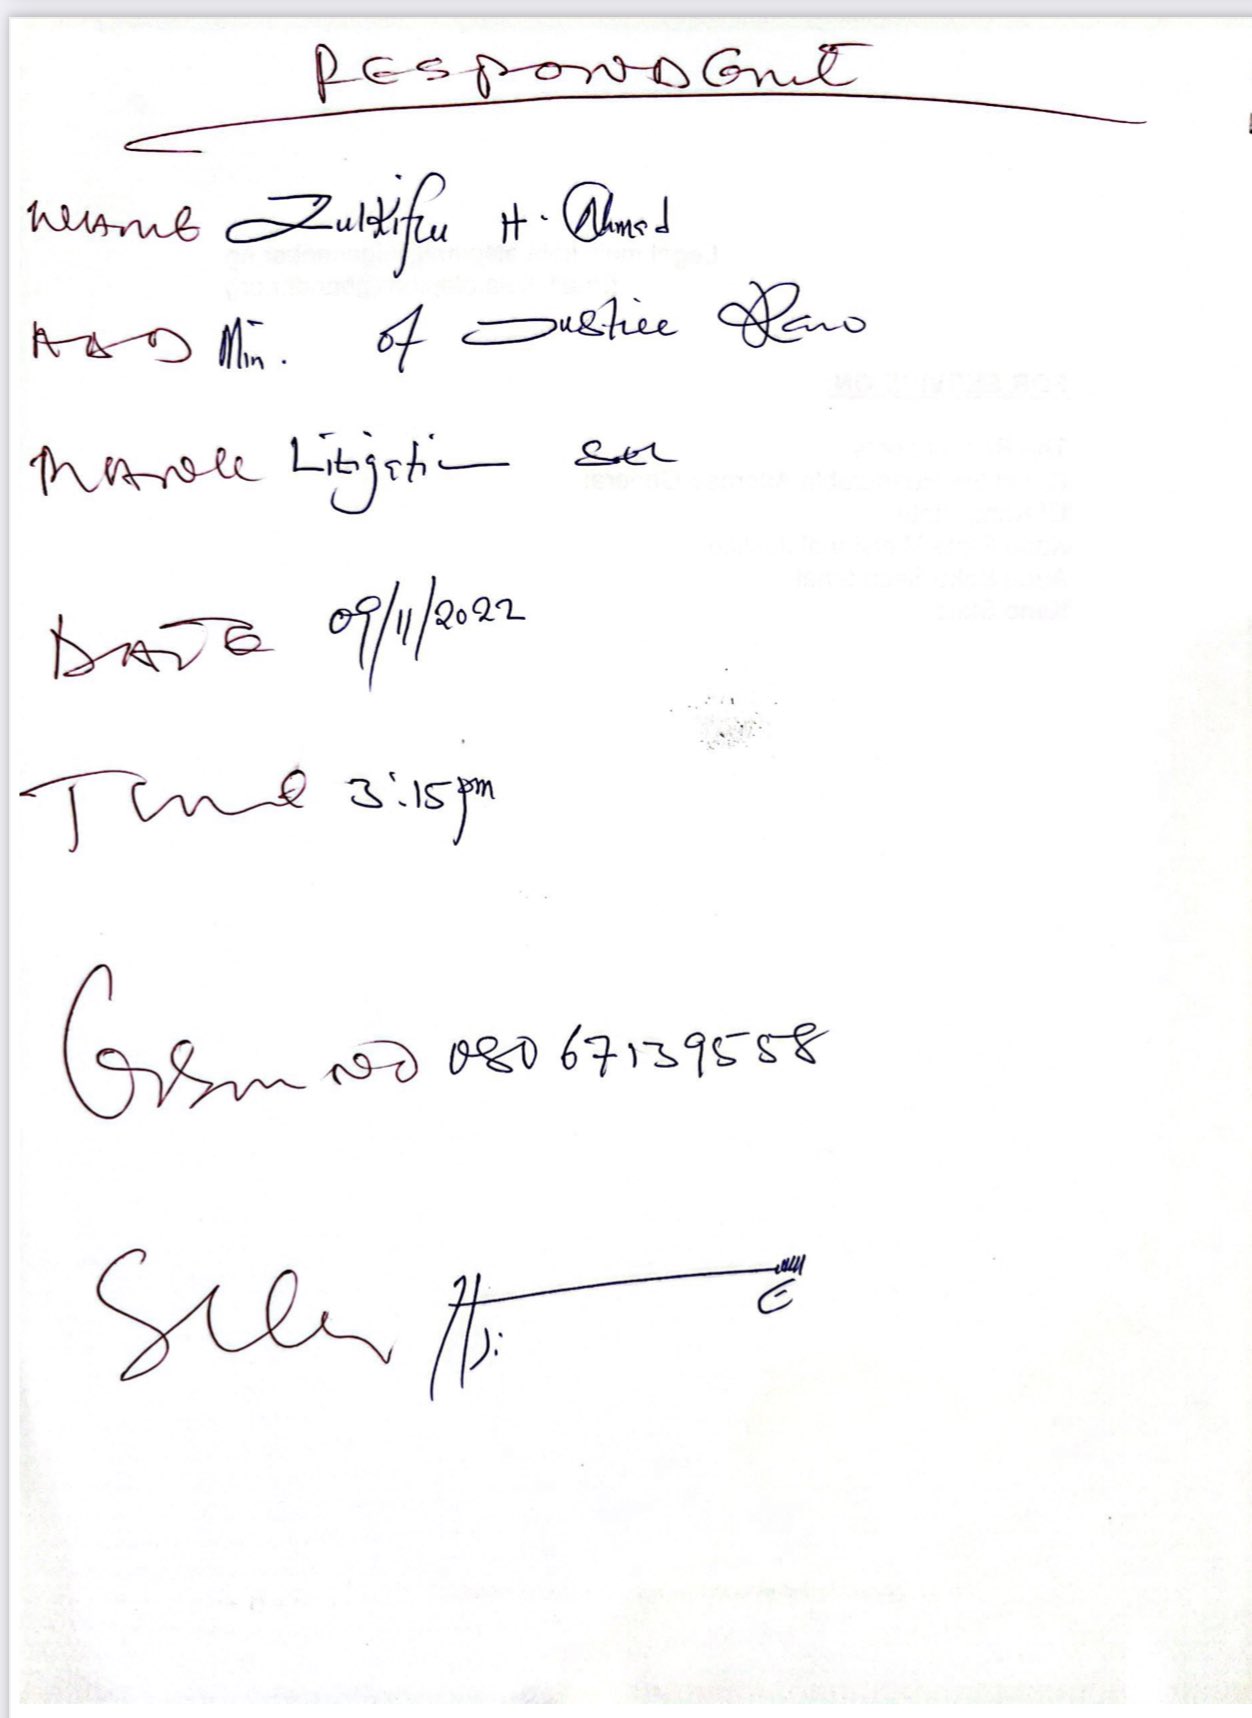 RESPONDENT
NAME Zulkiflu H. Ahmed
ADD Min. of Justice Kano
Litigation
DATE 09/11/2022
Time 3:15pm
GSM NO 08067139558